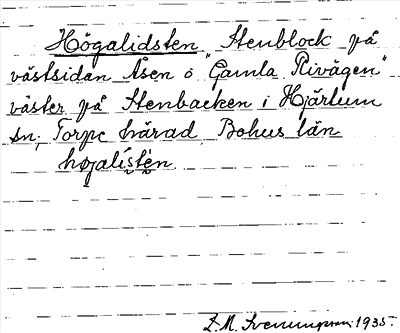 Högalidsten Stenblock på
västsidan Åsen o "Gamla Rivägen"
väster på Stenbacken i Hjärtum
sn; Torpe härad Bohus län
högalistèn
1935.